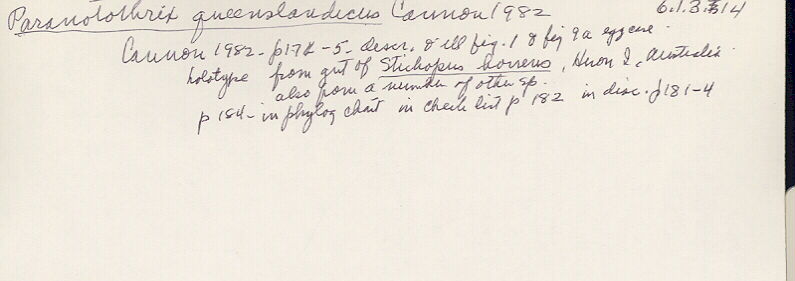 Paranotothrix queenslandicus Cannon 1982 6.1.3.14
Cannon 1982 - p174-5 - descr. & ill fig. 1 & fig 9a egg case
holotype from gut of Stichopus horrens, Heron I, Australia
also from a number of other sp.
p 184 - in phylog chart in check list p 182 in disc. p181-4